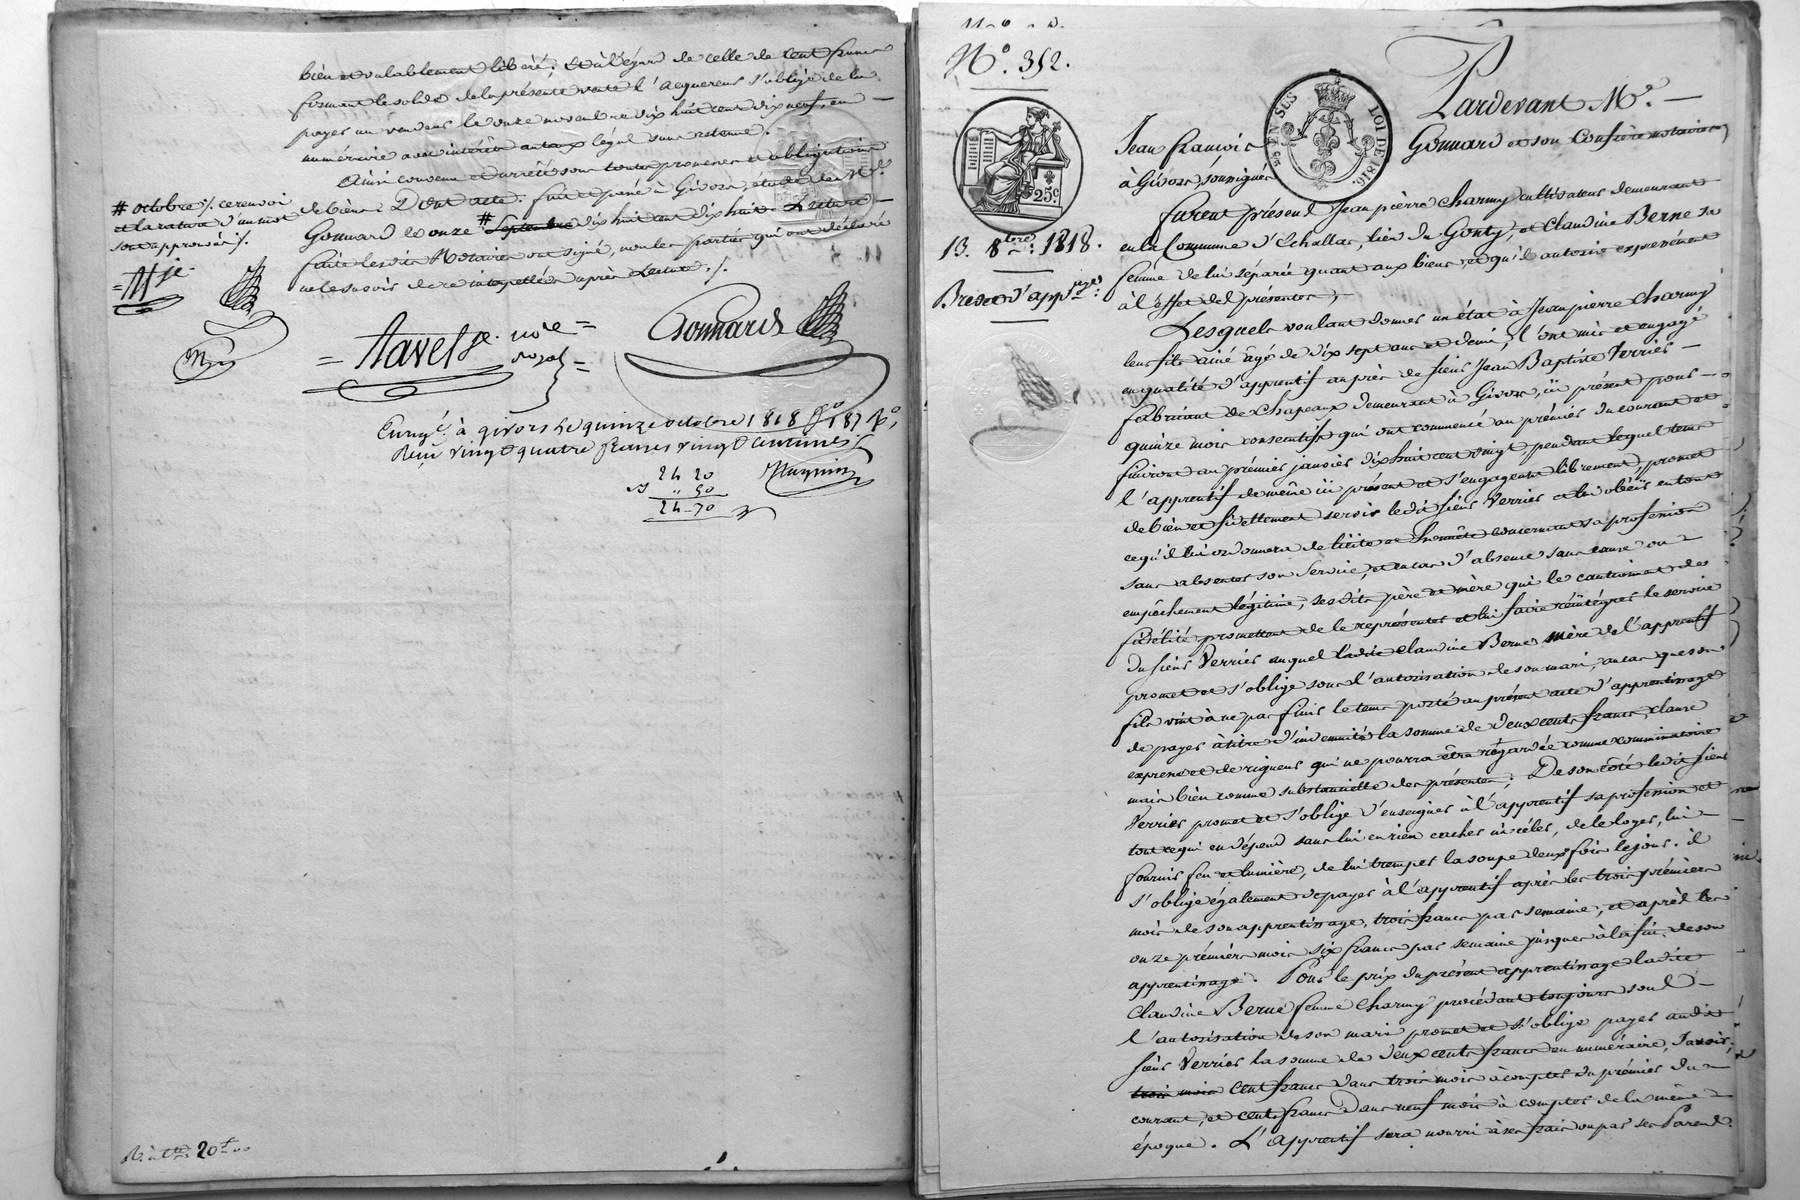 bien et valablement libéré; et à l'égard de celle de cent francs
formant le solde de la présente vente l'acquereur s'oblige de la
payer au vendeur le onze novembre dix huit cent dix neuf, en
numéraire avec intérêts au taux légal sans retenue.
Ainsi convenu et arrêté sous toutes promesses et obligations
de biens. Dont acte. fait et passé à Givors, étude de Me.
Gonnard le onze # Septembre dix huit cent dix huit. Lecture
faite lesdits Notaires ont signé, non les parties qui ont déclaré
ne le savoir de ce interpellées après lecture ./.
# octobre ./. ce renvoi
et la rature d'un mot
sont approuvés ./.
= Tavel je. nre =
royal =
Gonnard
Enregé. à givors le quinze octobre 1818 fo 187 Ro,
Reçu vingt quatre francs vingt centimes
24 20
50
24-70
20 f 00
No. 352.
25c.
EN SUS
LOI DE 1816.
13. 8bre. 1818.
Brevet d'appage.
Pardevant Me. —
Jean francois
Gonnard et son Confrère notaires
à Givors, soussignés
furent présens Jean pierre Charmy cultivateur demeurant
en la Commune d'Echallas, lieu du Gonty, et Claudine Berne sa
femme de lui séparée quant aux biens, et qu'il autorise expressément
à l'effet des présentes,
Lesquels voulant donner un état à Jean pierre Charmy
leur fils ainé âgé de dix sept ans et demi, l'ont mis et engagé
en qualité d'apprentif auprès de sieur Jean Baptiste Verrier —
fabricant de Chapeaux demeurant à Givors, ici présent pour —
quinze mois consecutifs qui ont commencé au prémier du courant et
finiront au prémier janvier dix huit cent vingt, pendant lequel tems
l'apprentif de même ici présent et s'engageant librement, promet
de bien et fidellement servir ledit sieur Verrier et lui obéir en tout
ce qu'il lui ordonnera de licite et honnête concernant sa profession
sans absenter son service, et en cas d'absence sans cause ou
empêchement légitime, sesdits père et mère qui le cautionnent de
fidélité, promettent de le représenter et lui faire réintégrer le service
du sieur Verrier auquel ladite Claudine Berne mère de l'apprentif
promet et s'oblige sous l'autorisation de son mari, au cas que son
fils vint à ne pas finir le tems porté au présent acte d'apprentissage
de payer à titre d'indemnité la somme de deux cents francs, clause
expresse et de rigueur qui ne pourra être régardée comme comminatoire
mais bien comme substancielle des présentes. De son côté ledit sieur
Verrier promet et s'oblige d'enseigner à l'apprentif sa profession et
tout ce qui en dépend sans lui en rien cacher ni céler, de le loger, lui
fournir feu et lumière, de lui tremper la soupe deux fois le jour. il
s'oblige également de payer à l'apprentif après les trois prémiers
mois de son apprentissage, trois francs par semaine, et après les
onze prémiers mois six francs par semaine jusques à la fin de son
apprentissage. Pour le prix du présent apprentissage ladite
Claudine Berne femme Charmy procédant toujours sous l'
l'autorisation de son mari promet et s'oblige payer audit
sieur Verrier la somme de deux cents francs en numéraire, savoir,
trois mois Cent francs dans trois mois à compter du prémier du
courant, et cent francs dans neuf mois à compter de la même
époque. L'apprentif sera nourri à ses frais ou par ses Parens.